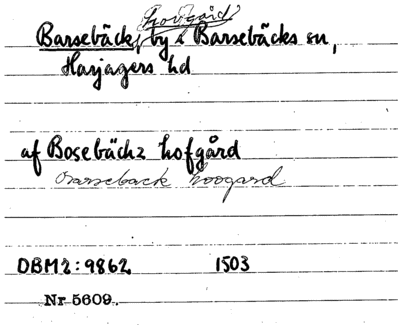 hovgård
Barsebäck, by i Barsebäcks sn,
Harjagers hd
af Bosebäckz hofgård
Barseback hovgard
DBM2:9862 1503
Nr 5609.